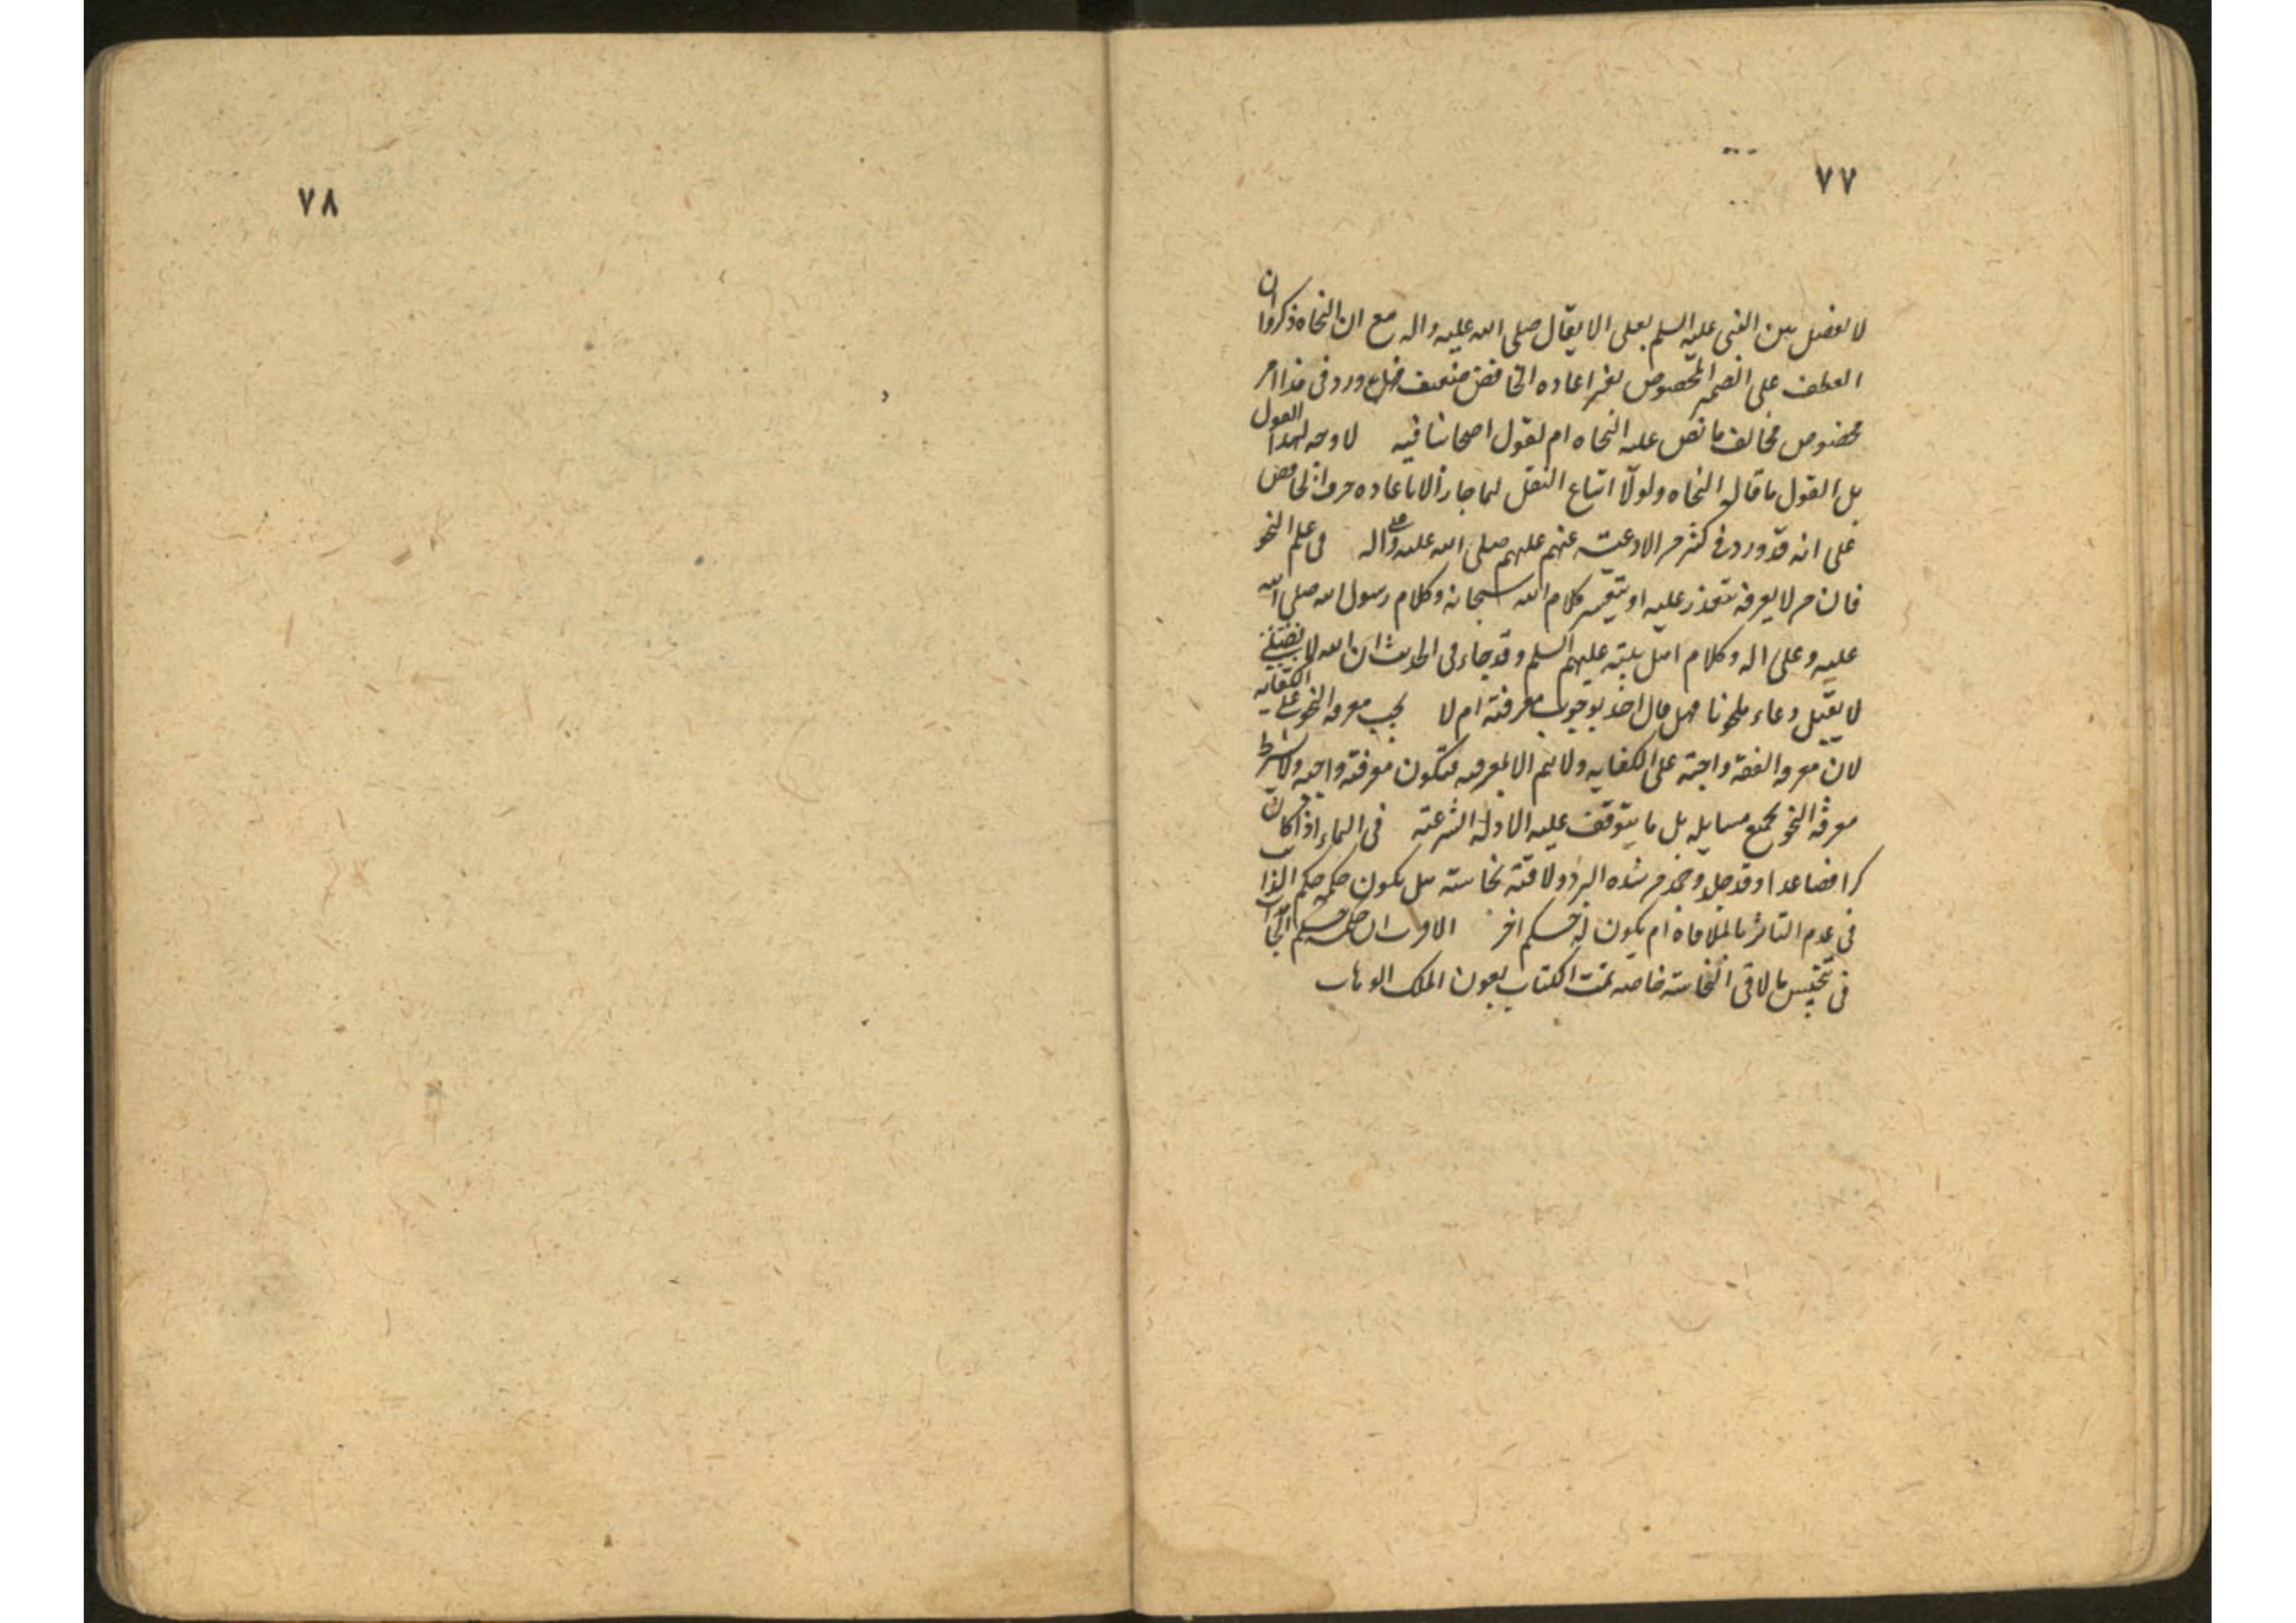 ٧٧
لا يفصل بين النبى عليه السلم بعلى الا يقال صلى الله عليه واله مع ان النحاه ذكروا ان
العطف على الضمير المخصوص بغير اعاده الخافض ضعيف فهل ورد فى هذا امر
مخصوص مخالف ما نص عليه النحاه ام لقول اصحابنا فيه لا وجه لهذا القول
بل القول ما قاله النحاه ولولا اتباع النقل لما جاز الا باعاده حرف الخافض
على انه قد ورد فى كثير من الادعيه عنهم عليهم صلى الله عليه وعلى اله فى علم النحو
فان من لا يعرفه يتعذر عليه او يتعسر كلام الله سبحانه وكلام رسول الله صلى الله
عليه وعلى اله وكلام اهل بيته عليهم السلم وقد جاء فى الحديث ان الله
لا يقبل دعاء ملحونا فهل قال احد بوجوب معرفته ام لا يجب معرفه النحو على الكفايه
لان معرفه الفقه واجبة على الكفايه ولا يتم الا بمعرفته فتكون معرفته واجبه ولا يشترط
معرفة النحو بجميع مسايله بل ما يتوقف عليه الادله الشرعيه فى الماء اذا كان
كرا فصاعدا وقد جمد من شده البرد ولاقته نجاسته هل يكون حكمه حكم الذائب
فى عدم التاثر بالملاقاة ام يكون له حكم اخر الاقرب ان حكمه حكم الجامدات
فى تنجيس ما لاقى النجاسة خاصه تمت الكتاب بعون الملك الوهاب
٧٨